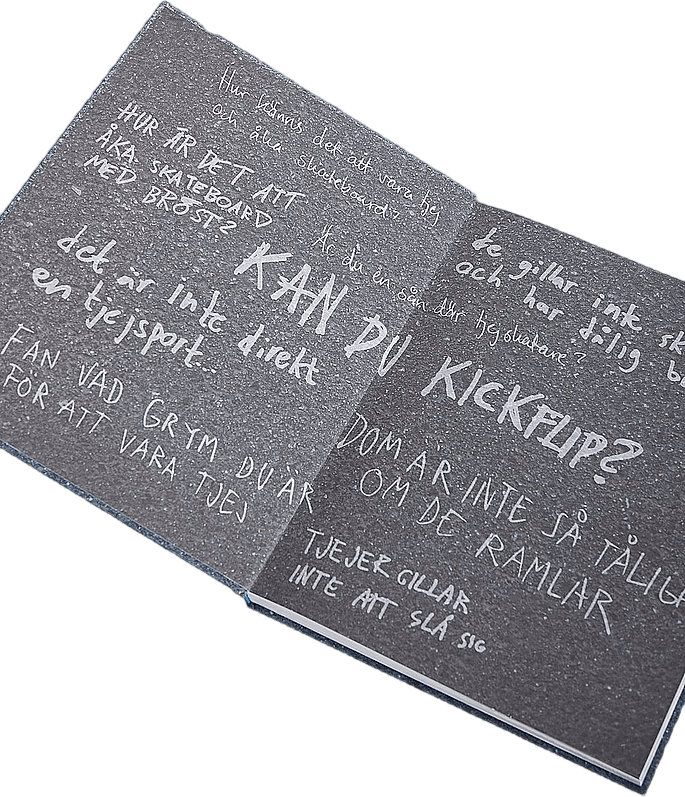 Hur känns det att vara tjej
och åka skateboard?
HUR ÄR DET ATT
ÅKA SKATEBOARD
MED BRÖST?
Är du en sån där tjejskatare?
KAN DU KICKFLIP?
det är inte direkt
en tjejsport...
FAN VAD GRYM DU ÄR
FÖR ATT VARA TJEJ
de gillar inte
och har dålig
DOM ÄR INTE SÅ TÅLIGA
OM DE RAMLAR
TJEJER GILLAR
INTE ATT SLÅ SIG